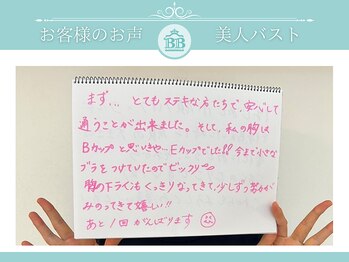 お客様のお声
BB
美人バスト
まず... とてもステキな方たちで、安心して
通うことが出来ました。そして、私の胸は
Bカップと思いきや...Eカップでした!! 今まで小さな
ブラをつけていたのでビックリ
胸の下ラインもくっきりなってきて、少しずつ努力が
みのってきて嬉しい!!
あと1回がんばります